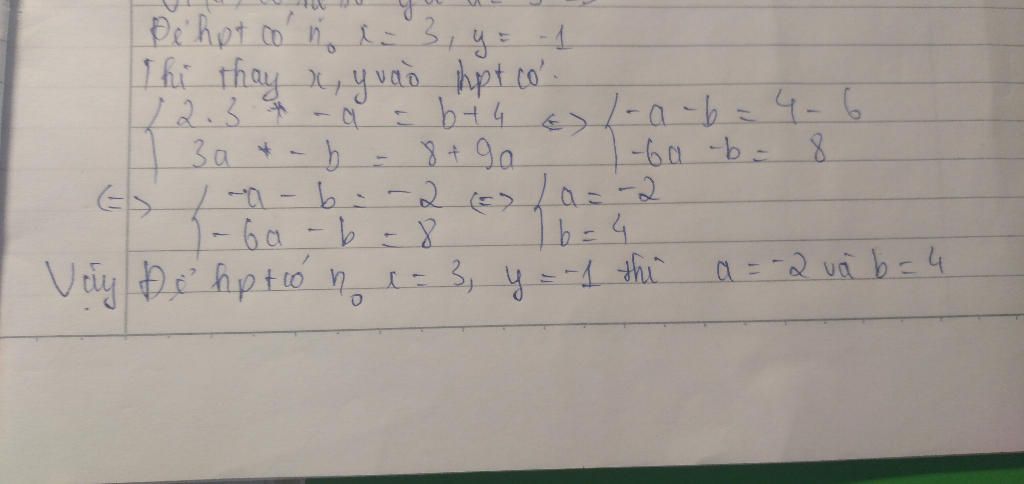 Để hpt có n₀ x = 3, y = -1
Thì thay x, y vào hpt có:
{ 2.3 * - a = b + 4 <=> { -a - b = 4 - 6
3a * - b = 8 + 9a -6a - b = 8
<=> { -a - b = -2 <=> { a = -2
-6a - b = 8 b = 4
Vậy Để hpt có n₀ x = 3, y = -1 thì a = -2 và b = 4